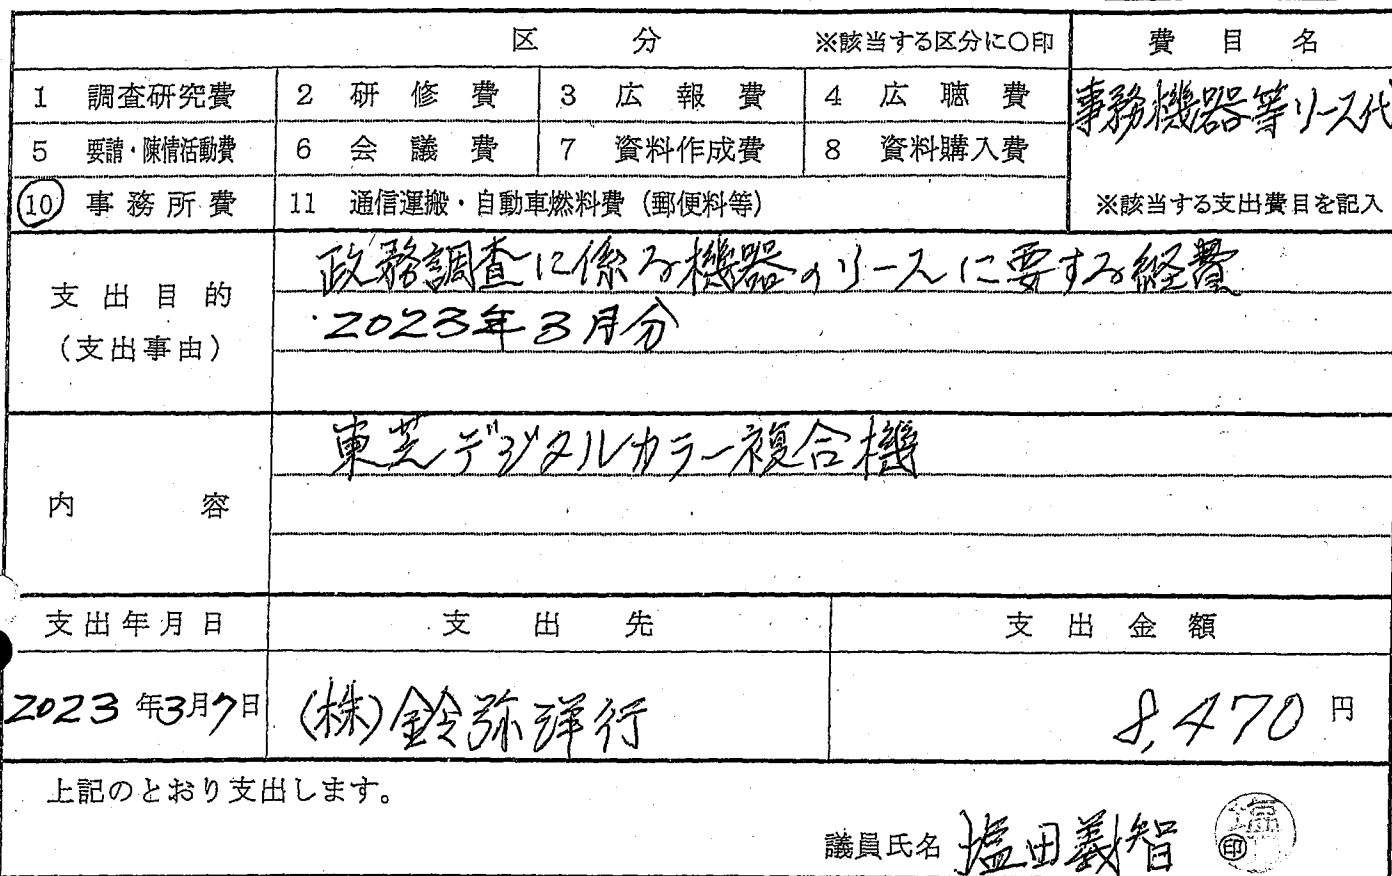 区 分 ※該当する区分に○印 費目名
1 調査研究費 2 研修費 3 広報費 4 広聴費 事務機器等リース代
5 要請・陳情活動費 6 会議費 7 資料作成費 8 資料購入費
⑩ 事務所費 11 通信運搬・自動車燃料費（郵便料等） ※該当する支出費目を記入
支出目的
（支出事由）
政務調査に係る機器のリースに要する経費
2023年3月分
内 容
東芝デジタルカラー複合機
支出年月日 支出先 支出金額
2023年3月7日 (株)鈴弥洋行 8,470円
上記のとおり支出します。
議員氏名 塩田義智 印